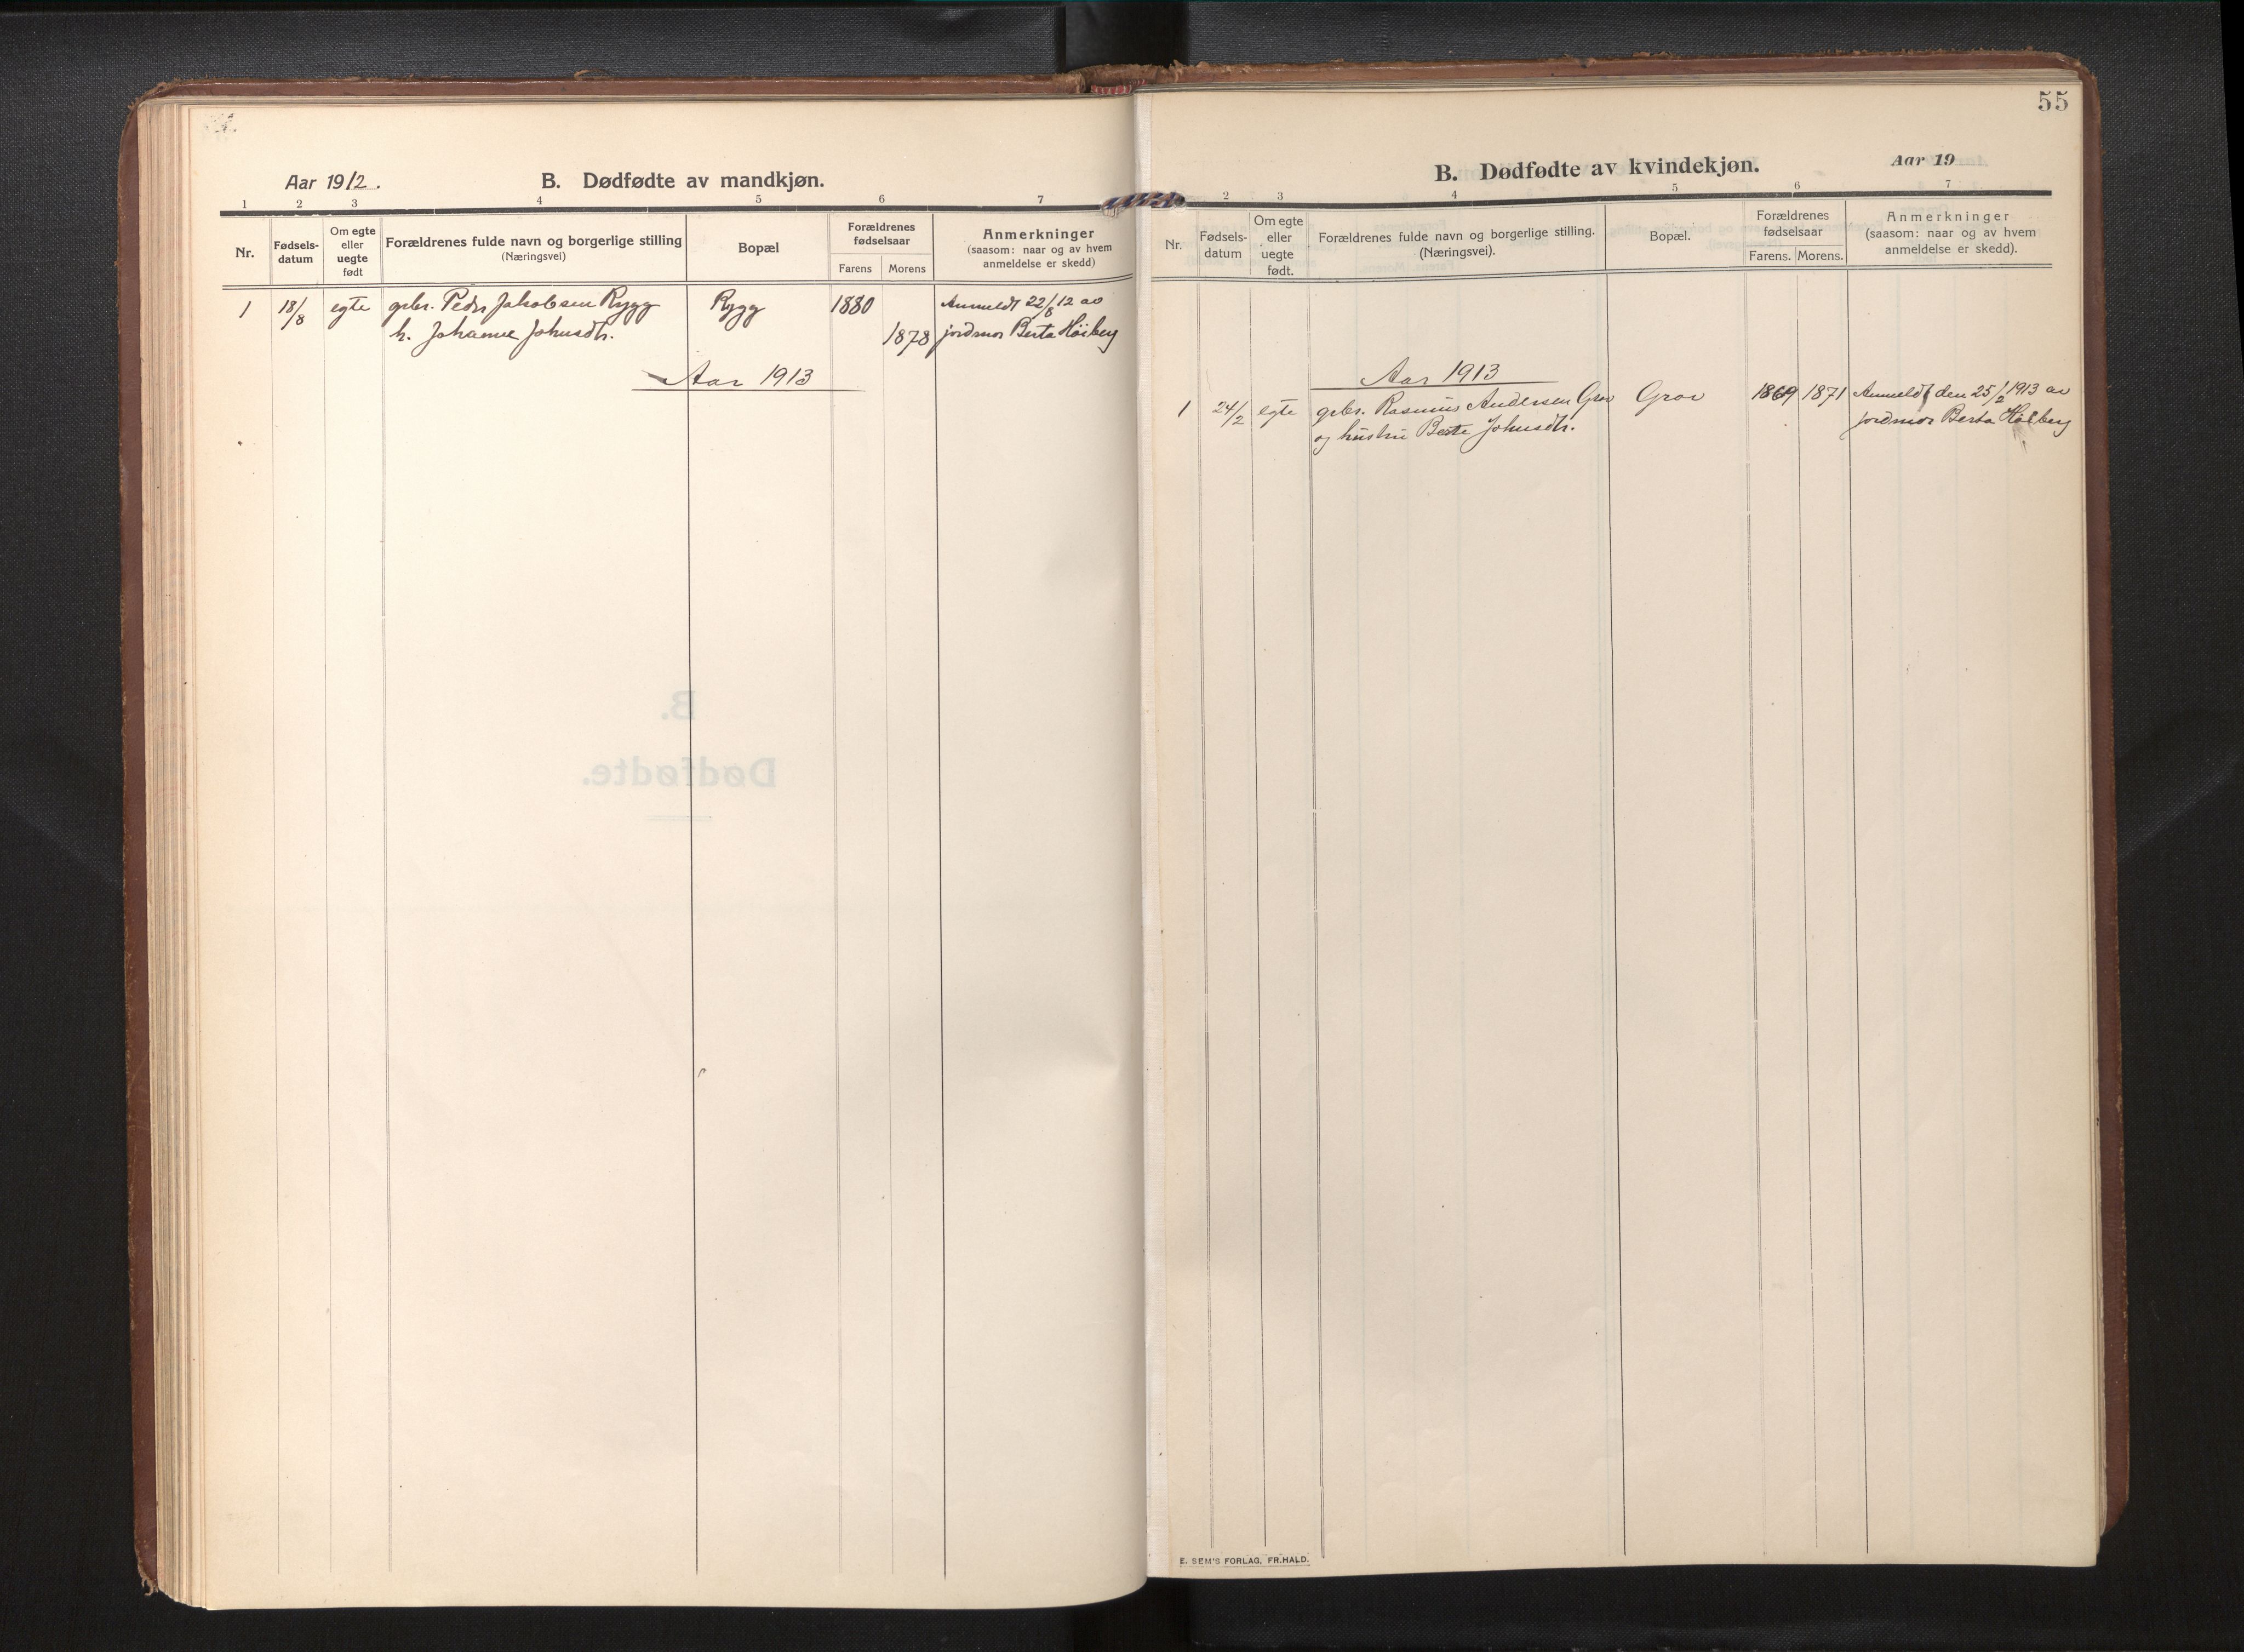 Aar 1912.
B. Dødfødte av mandkjøn.
1 2 3 4 5 6 7
Nr.
Fødsels-
datum
Om egte
eller
uegte
født
Forældrenes fulde navn og borgerlige stilling
(Næringsvei)
Bopæl
Forældrenes
fødselsaar
Farens Morens
Anmerkninger
(saasom: naar og av hvem
anmeldelse er skedd)
1 18/8 egte grbr. Peder Jakobsen Rygg Rygg 1880 Anmeldt 22/8 12 av
h. Johanne Johnsdtr. 1878 jordmor Berta Høiberg
Aar 1913
55
B. Dødfødte av kvindekjøn.
Aar 19
2 3 4 5 6 7
Nr.
Fødsels-
datum
Om egte
eller
uegte
født.
Forældrenes fulde navn og borgerlige stilling.
(Næringsvei).
Bopæl.
Forældrenes
fødselsaar
Farens. Morens.
Anmerkninger
(saasom: naar og av hvem
anmeldelse er skedd).
Aar 1913
1 24/2 egte grbr. Rasmus Andersen Grov Grov 1869 1871 Anmeldt den 25/2 1913 av
og hustru Berte Johnsdtr. jordmor Berta Høiberg
E. SEM'S FORLAG, FR.HALD.